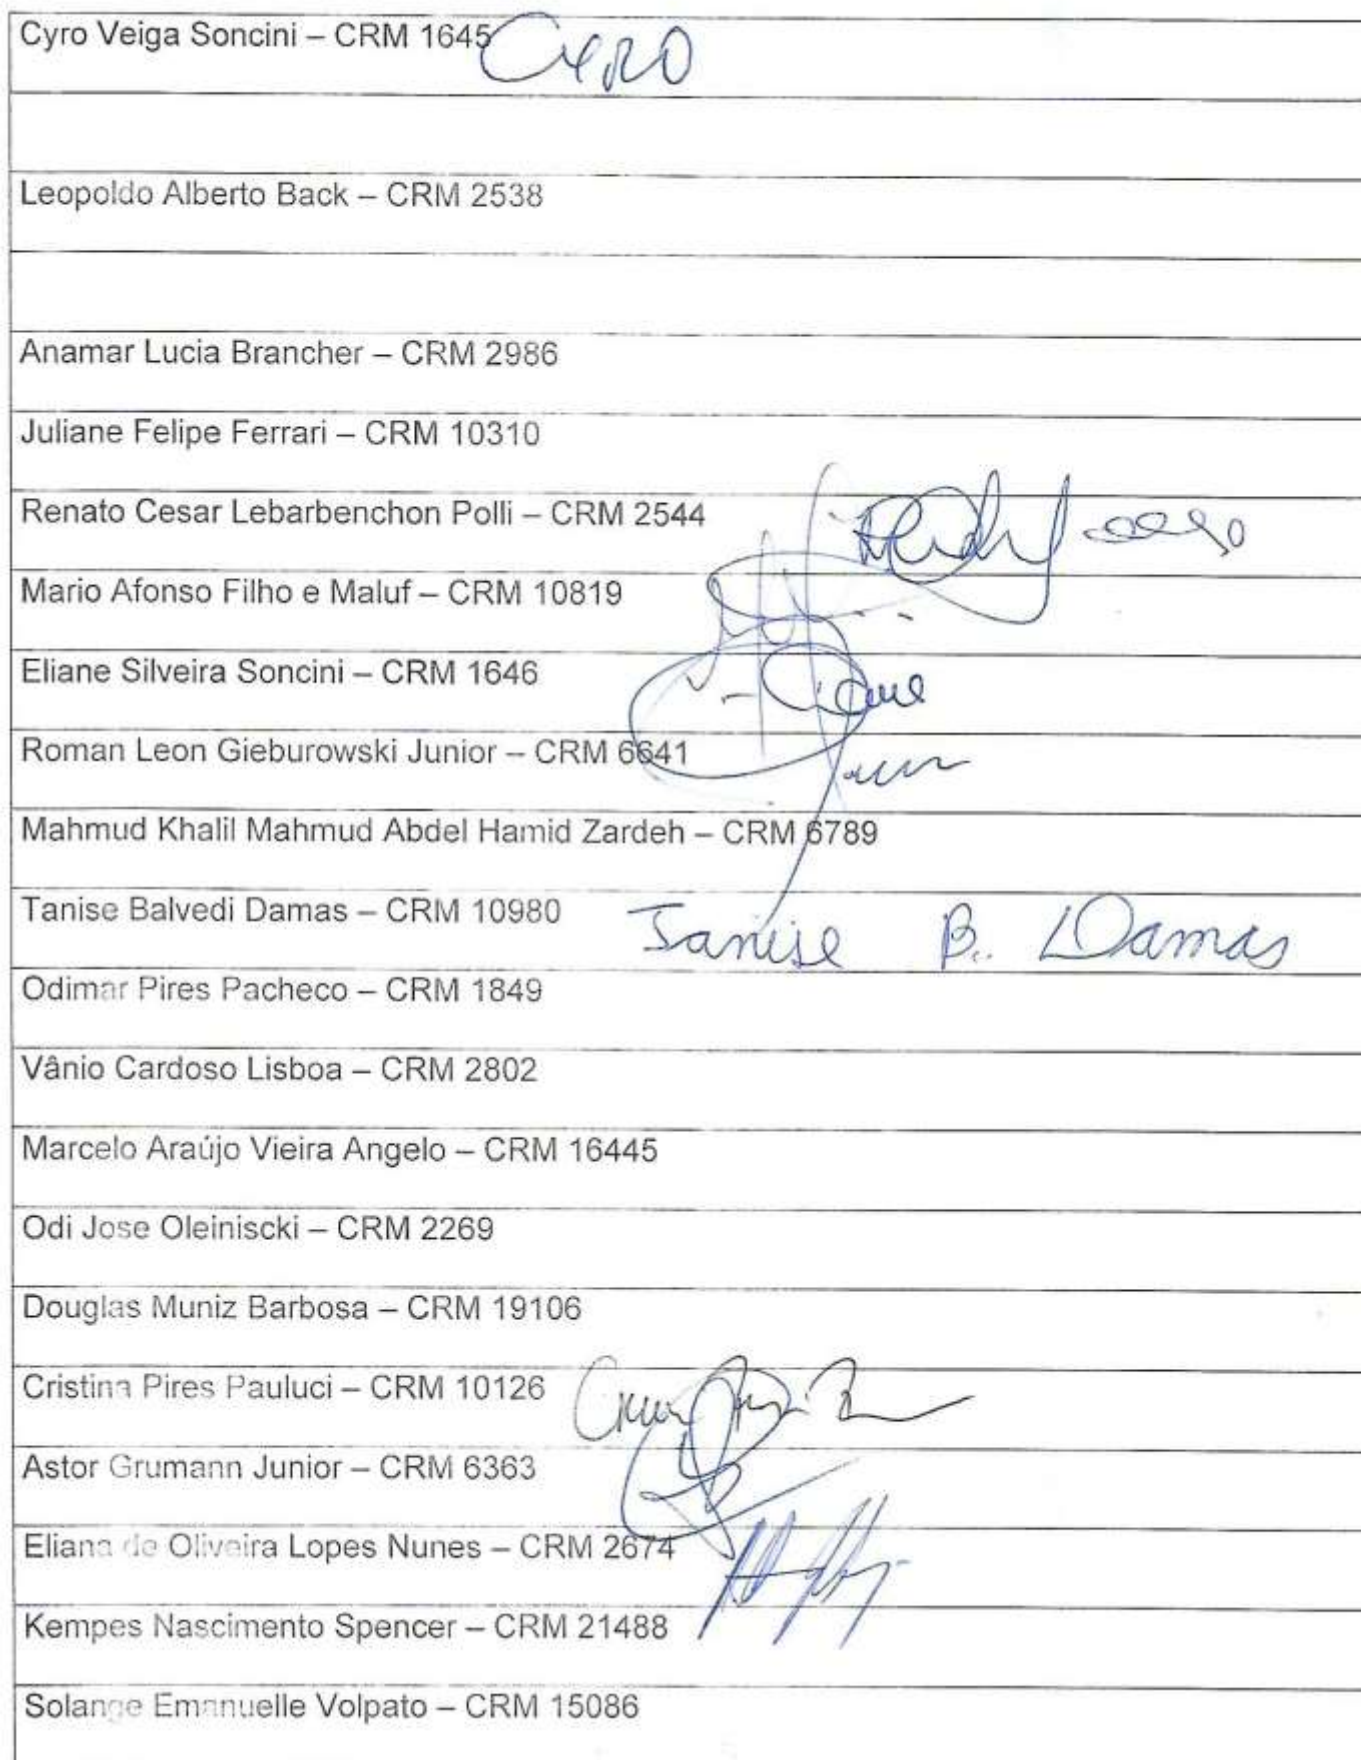 Cyro Veiga Soncini – CRM 1645 CYRO
Leopoldo Alberto Back – CRM 2538
Anamar Lucia Brancher – CRM 2986
Juliane Felipe Ferrari – CRM 10310
Renato Cesar Lebarbenchon Polli – CRM 2544
Mario Afonso Filho e Maluf – CRM 10819
Eliane Silveira Soncini – CRM 1646
Roman Leon Gieburowski Junior – CRM 6641
Mahmud Khalil Mahmud Abdel Hamid Zardeh – CRM 6789
Tanise Balvedi Damas – CRM 10980 Tanise B. Damas
Odimar Pires Pacheco – CRM 1849
Vânio Cardoso Lisboa – CRM 2802
Marcelo Araújo Vieira Angelo – CRM 16445
Odi Jose Oleiniscki – CRM 2269
Douglas Muniz Barbosa – CRM 19106
Cristina Pires Pauluci – CRM 10126
Astor Grumann Junior – CRM 6363
Eliana de Oliveira Lopes Nunes – CRM 2674
Kempes Nascimento Spencer – CRM 21488
Solange Emanuelle Volpato – CRM 15086